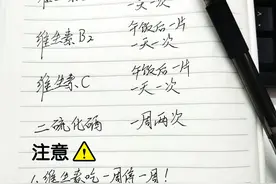 一天一次
维生素B2 午饭后一片
一天一次
维生素C 午饭后一片
一天一次
二硫化硒 一周两次
注意
1.维生素吃一周停一周!